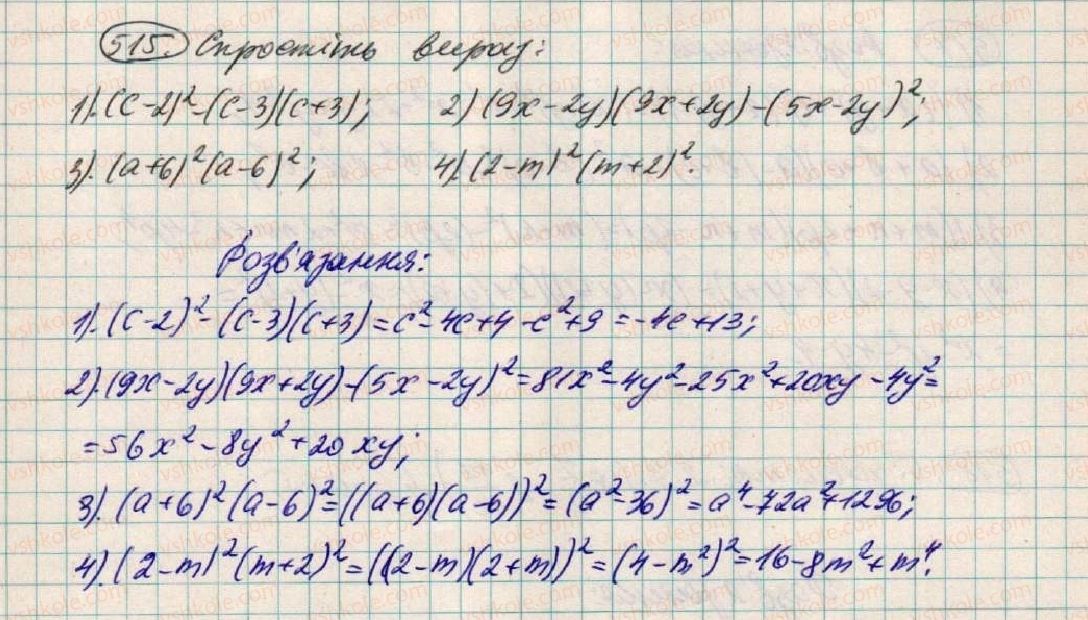 515. Спростіть вираз:
1). (c-2)²-(c-3)(c+3); 2) (9x-2y)(9x+2y)-(5x-2y)²;
3). (a+6)²(a-6)²; 4). (2-m)²(m+2)².
Розв'язання:
1). (c-2)²-(c-3)(c+3)=c²-4c+4-c²+9=-4c+13;
2). (9x-2y)(9x+2y)-(5x-2y)²=81x²-4y²-25x²+20xy-4y²=
=56x²-8y²+20xy;
3). (a+6)²(a-6)²=((a+6)(a-6))²=(a²-36)²=a⁴-72a²+1296;
4). (2-m)²(m+2)²=((2-m)(2+m))²=(4-m²)²=16-8m²+m⁴.